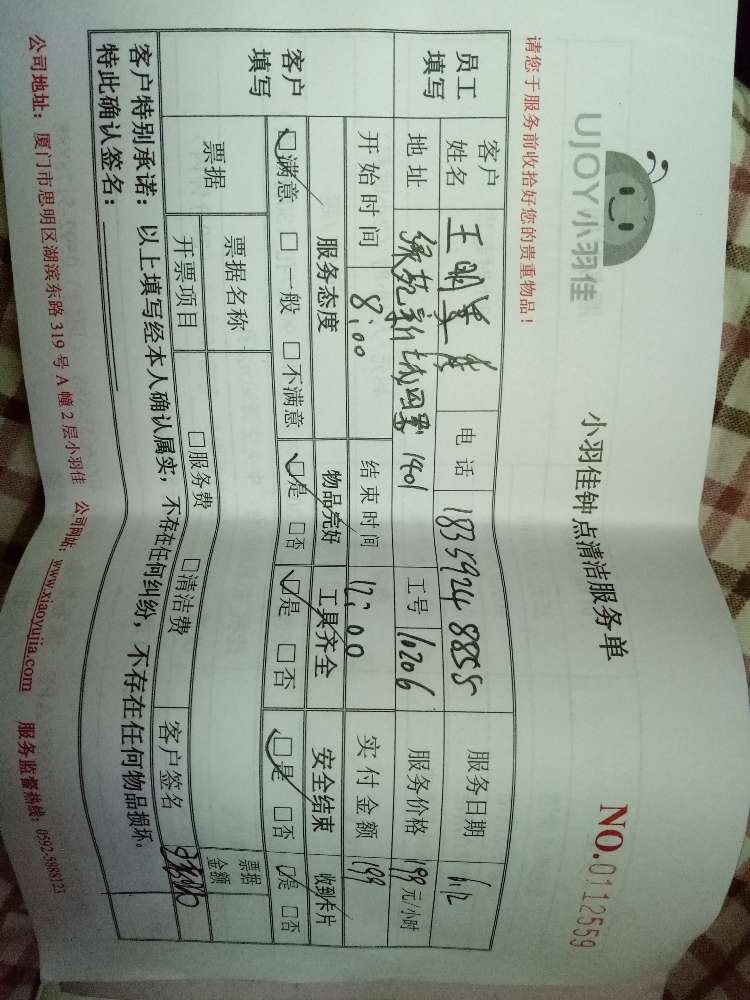 UJOY小羽佳
小羽佳钟点清洁服务单
NO.0112559
请您于服务前收拾好您的贵重物品！
员工填写 客户姓名 王明 电话 18359248855 服务日期 6.12
地址 绿苑新城四期 1401 工号 10206 服务价格 199 元/小时
开始时间 8:00 结束时间 12:00 实付金额 199
客户填写 服务态度 物品完好 工具齐全 安全结束 收到卡片
□满意 □一般 □不满意 □是 □否 □是 □否 □是 □否 □是 □否
票据 票据名称 票据金额
开票项目 □服务费 □清洁费 客户签名
客户特别承诺：以上填写经本人确认属实，不存在任何纠纷，不存在任何物品损坏。
特此确认签名：
公司地址：厦门市思明区湖滨东路 319 号 A 幢 2 层小羽佳 公司网站：www.xiaoyujia.com 服务监督热线：0592-5888123